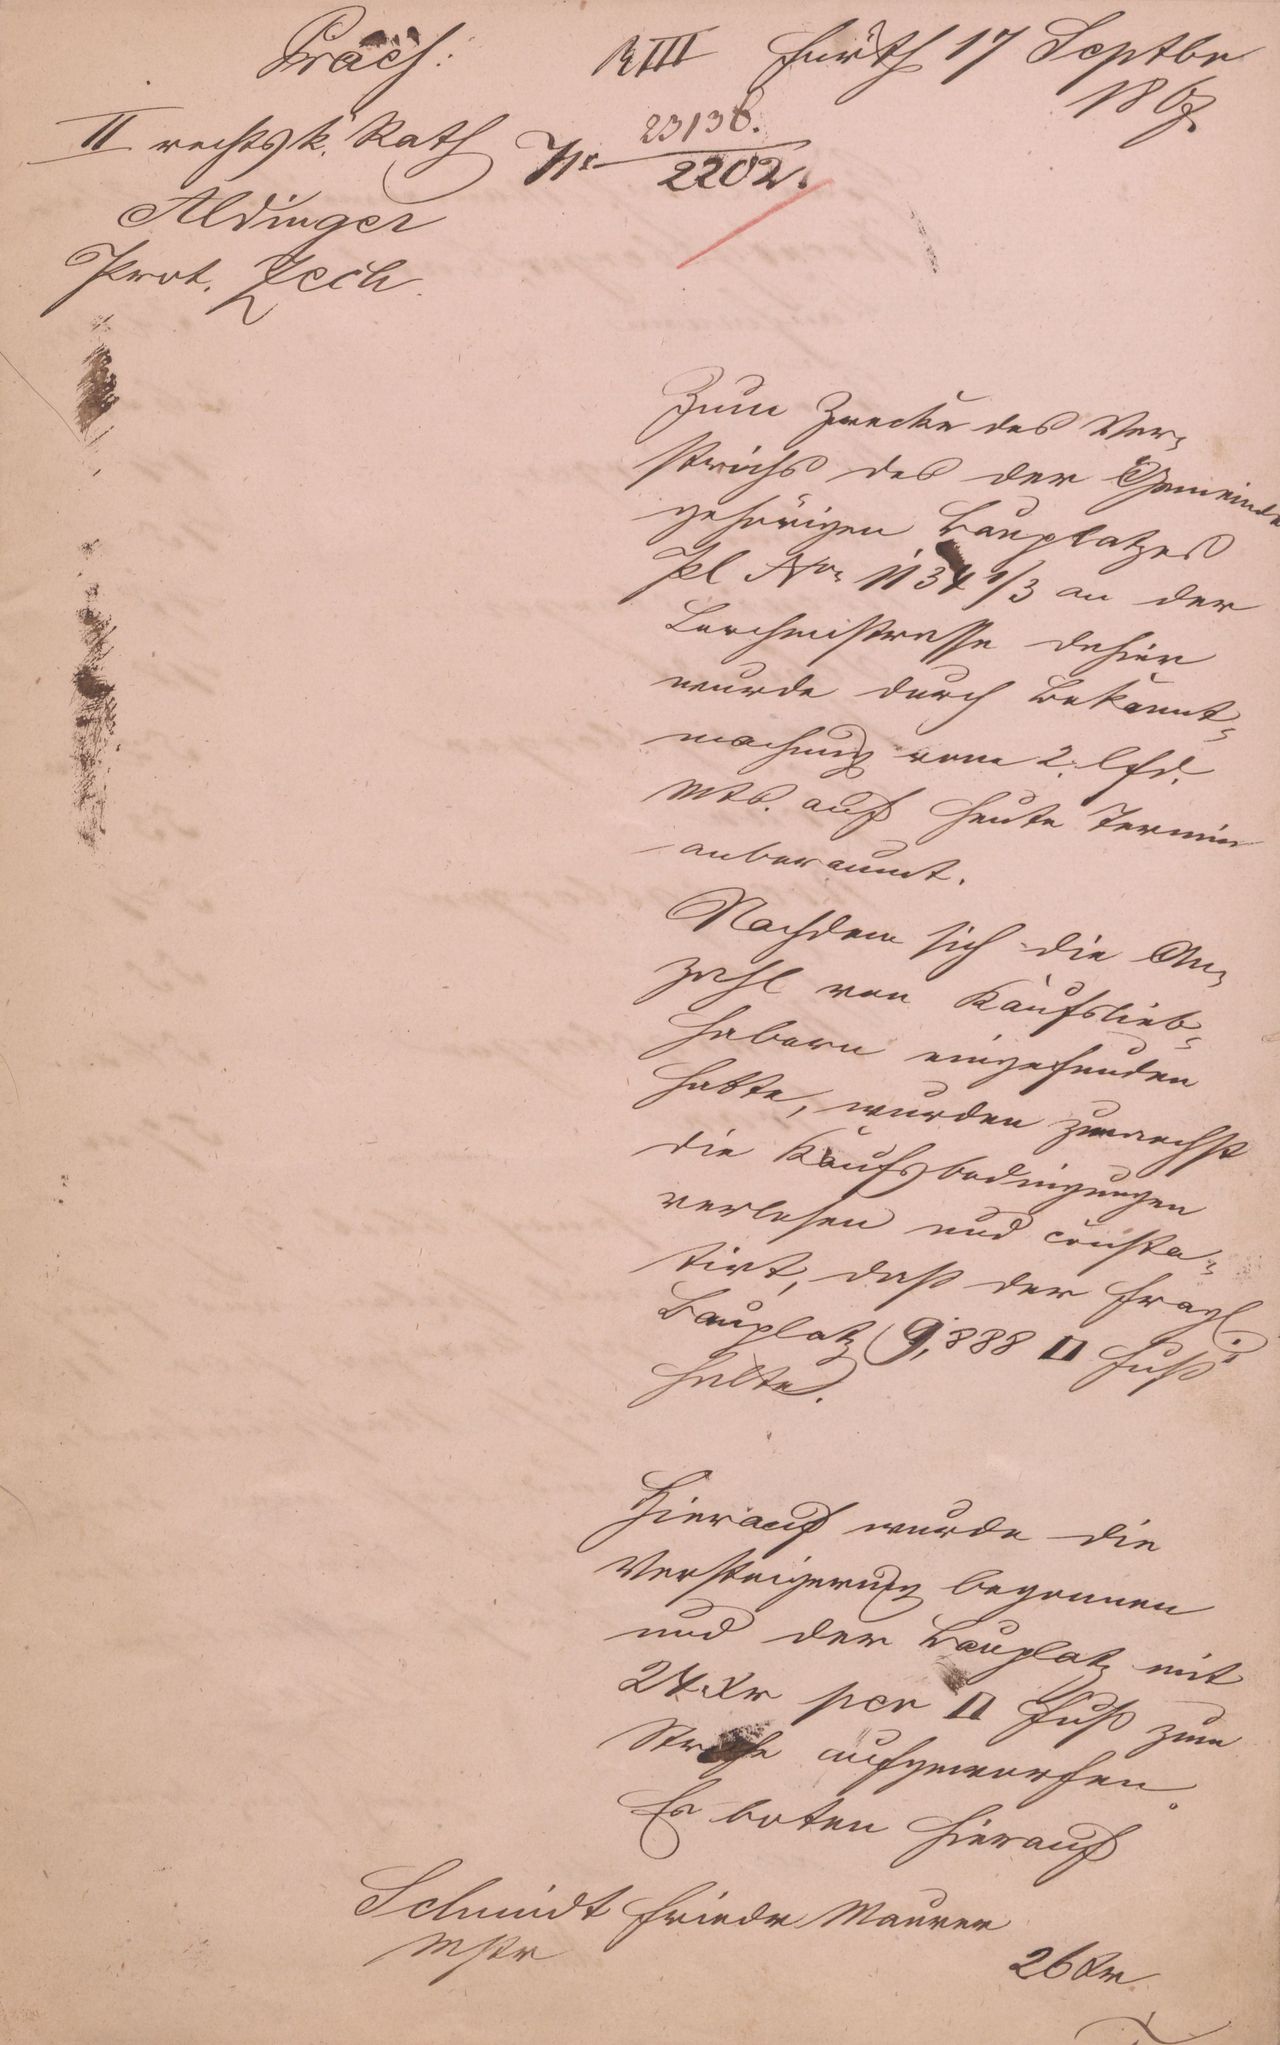 Präs:
R III Fürth 17 Septbr
186
II rechtsk. Rath
Nr 23138.
2202.
Aldinger
Prot. Zech.
Zum Zwecke des Ver-
strichs des der Gemeinde
gehörigen Bauplatzes
Pl Nro 1134 1/3 an der
Lerchenstrasse dahier
wurde durch Bekannt-
machung vom 2. lfd.
Mts. auf heute Termin
anberaumt.
Nachdem sich die An-
zahl von Kaufslieb-
habern eingefunden
hatte, wurden zunaechst
die Kaufsbedingungen
verlesen und consta-
tirt, daß der fragl.
Bauplatz 9,888 □ Fuß
halte.
Hierauf wurde die
Versteigerung begonnen
und der Bauplatz mit
24 Xr per □ Fuß zum
Striche aufgeworfen.
Es boten hierauf
Schmidt Friedr Maurer
Mstr
26 Xr.